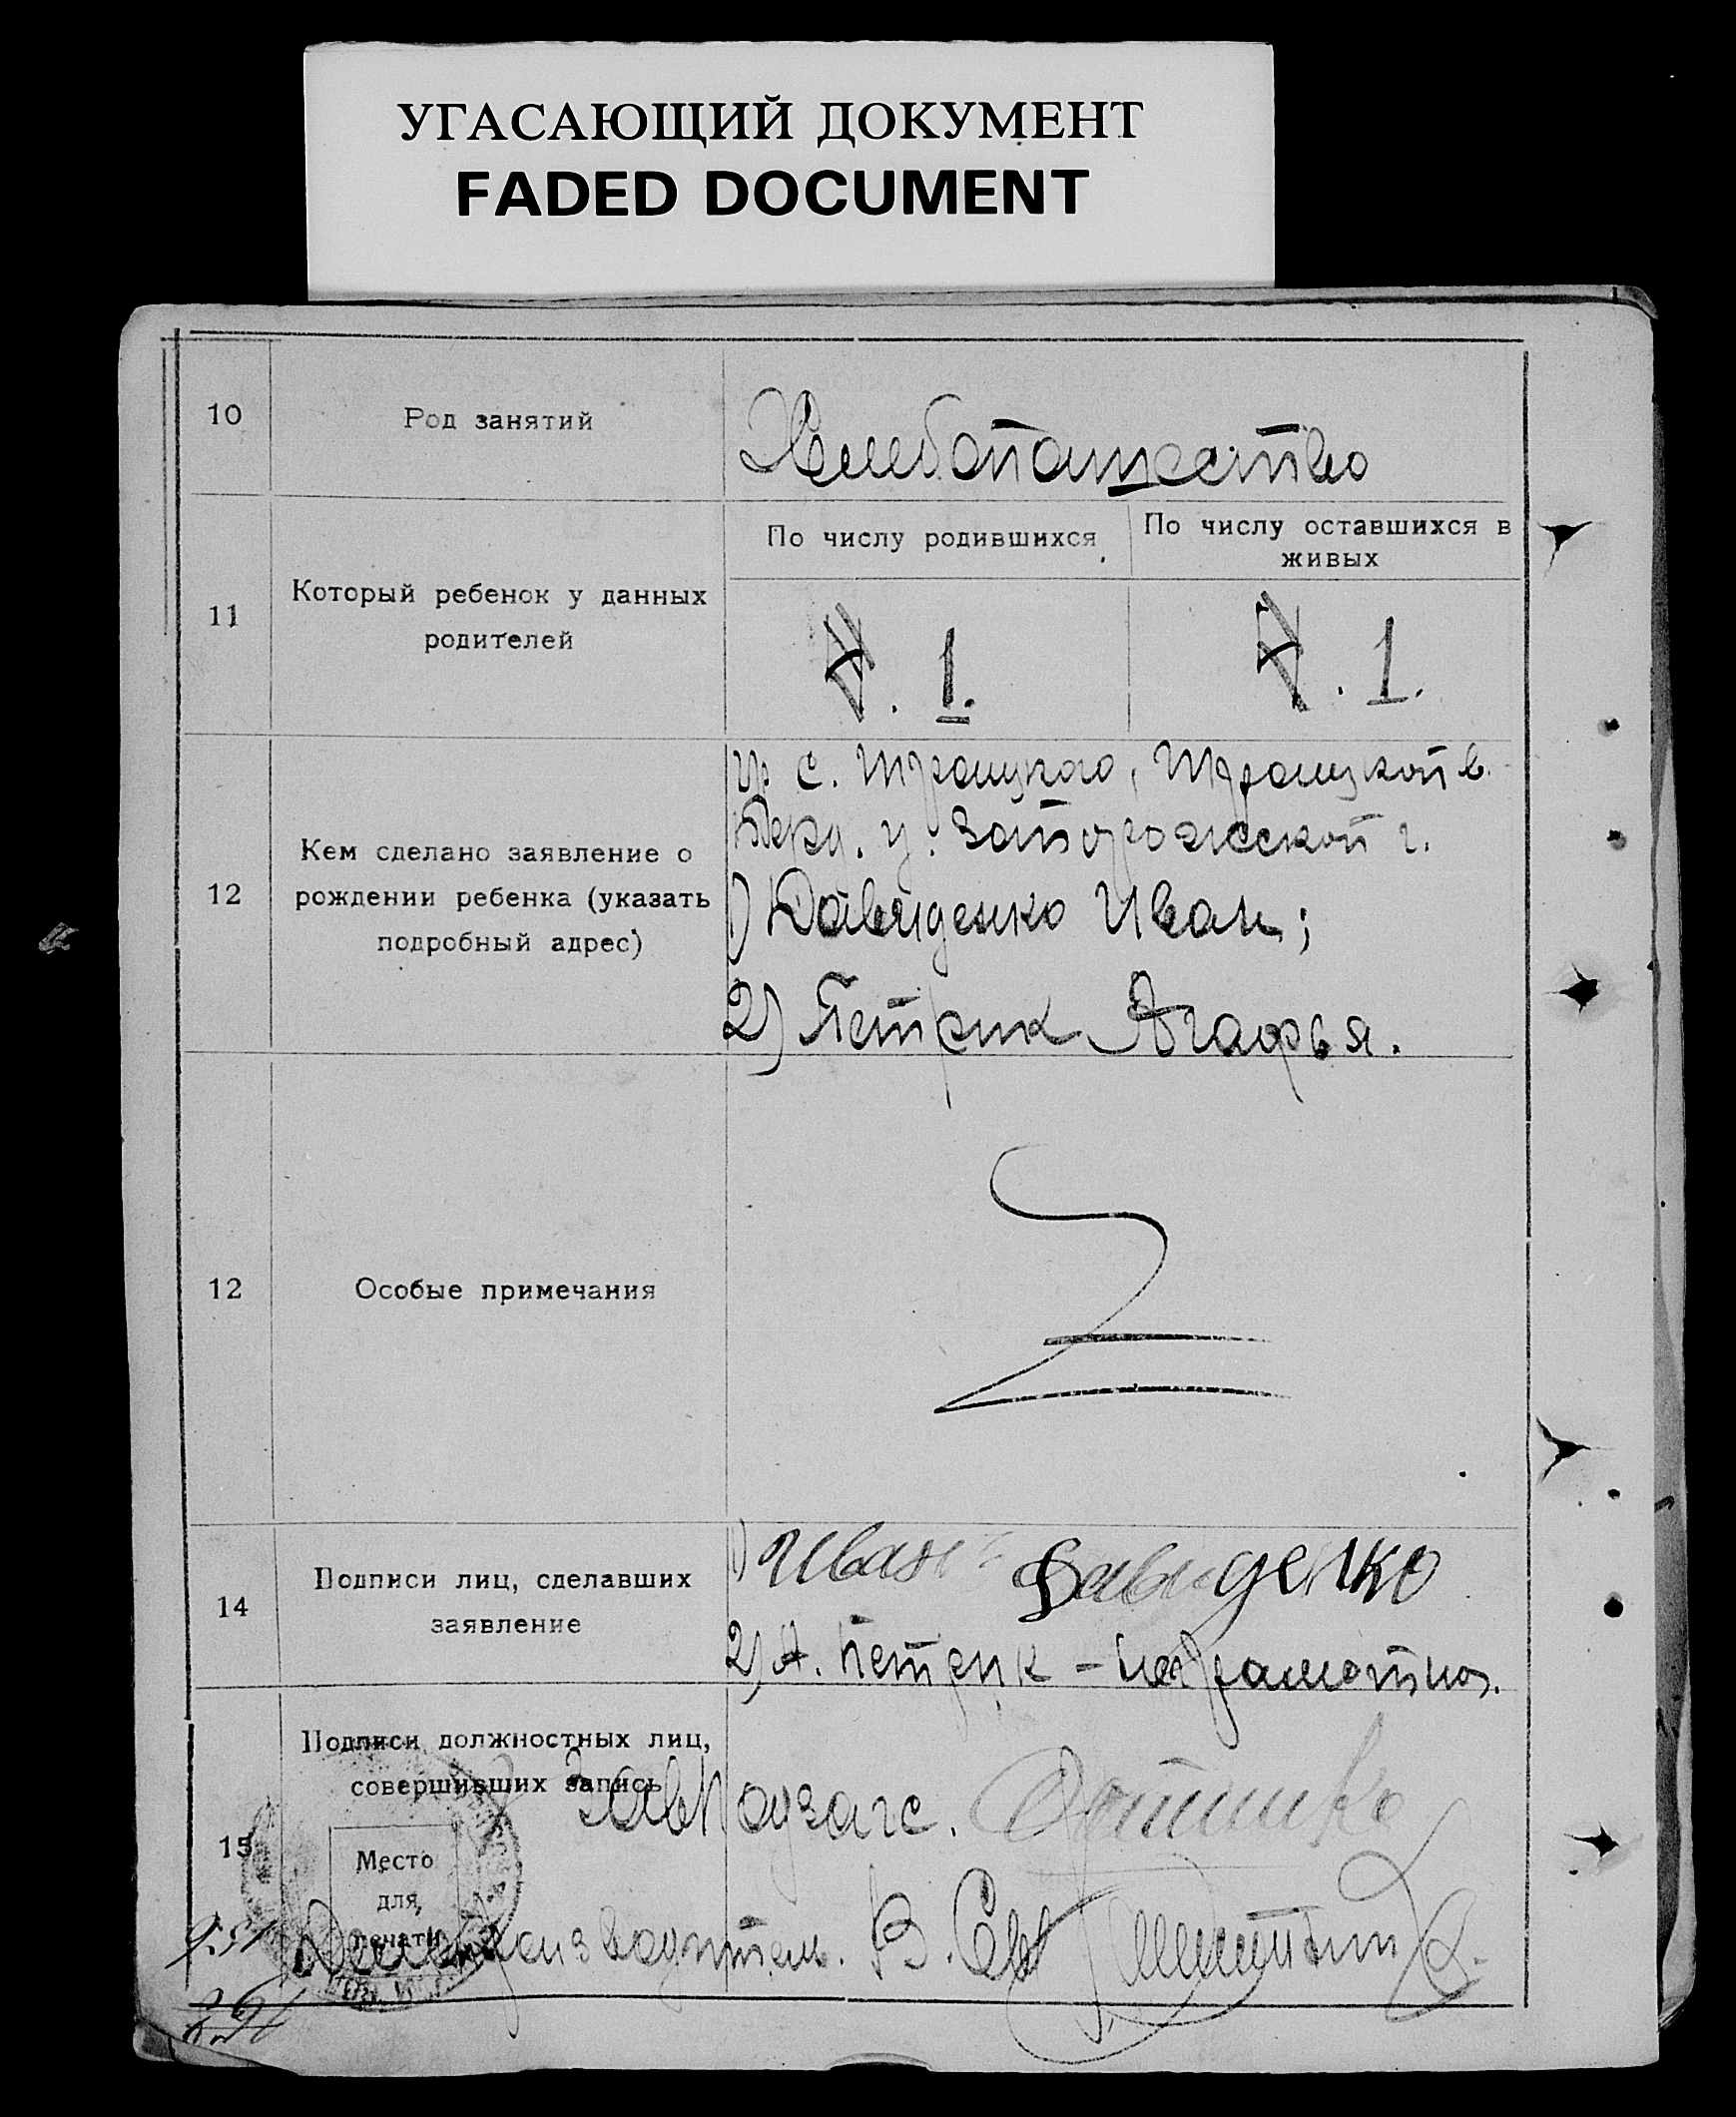 УГАСАЮЩИЙ ДОКУМЕНТ
FADED DOCUMENT
10
Род занятий
Хлебопашество
11
Который ребенок у данных
родителей
По числу родившихся
По числу оставшихся в
живых
1.
1.
12
Кем сделано заявление о
рождении ребенка (указать
подробный адрес)
гр. с. Троицкого, Троицкой в.
Берд. у. Запорожской г.
1) Давиденко Иван;
2) Петрик Агафья.
12
Особые примечания
14
Подписи лиц, сделавших
заявление
1) Иван Давиденко
2) А. Петрик - неграмотна.
15
Подписи должностных лиц,
совершивших запись
Завподзагс.
Место
для
печати
Делопроизводитель. В.